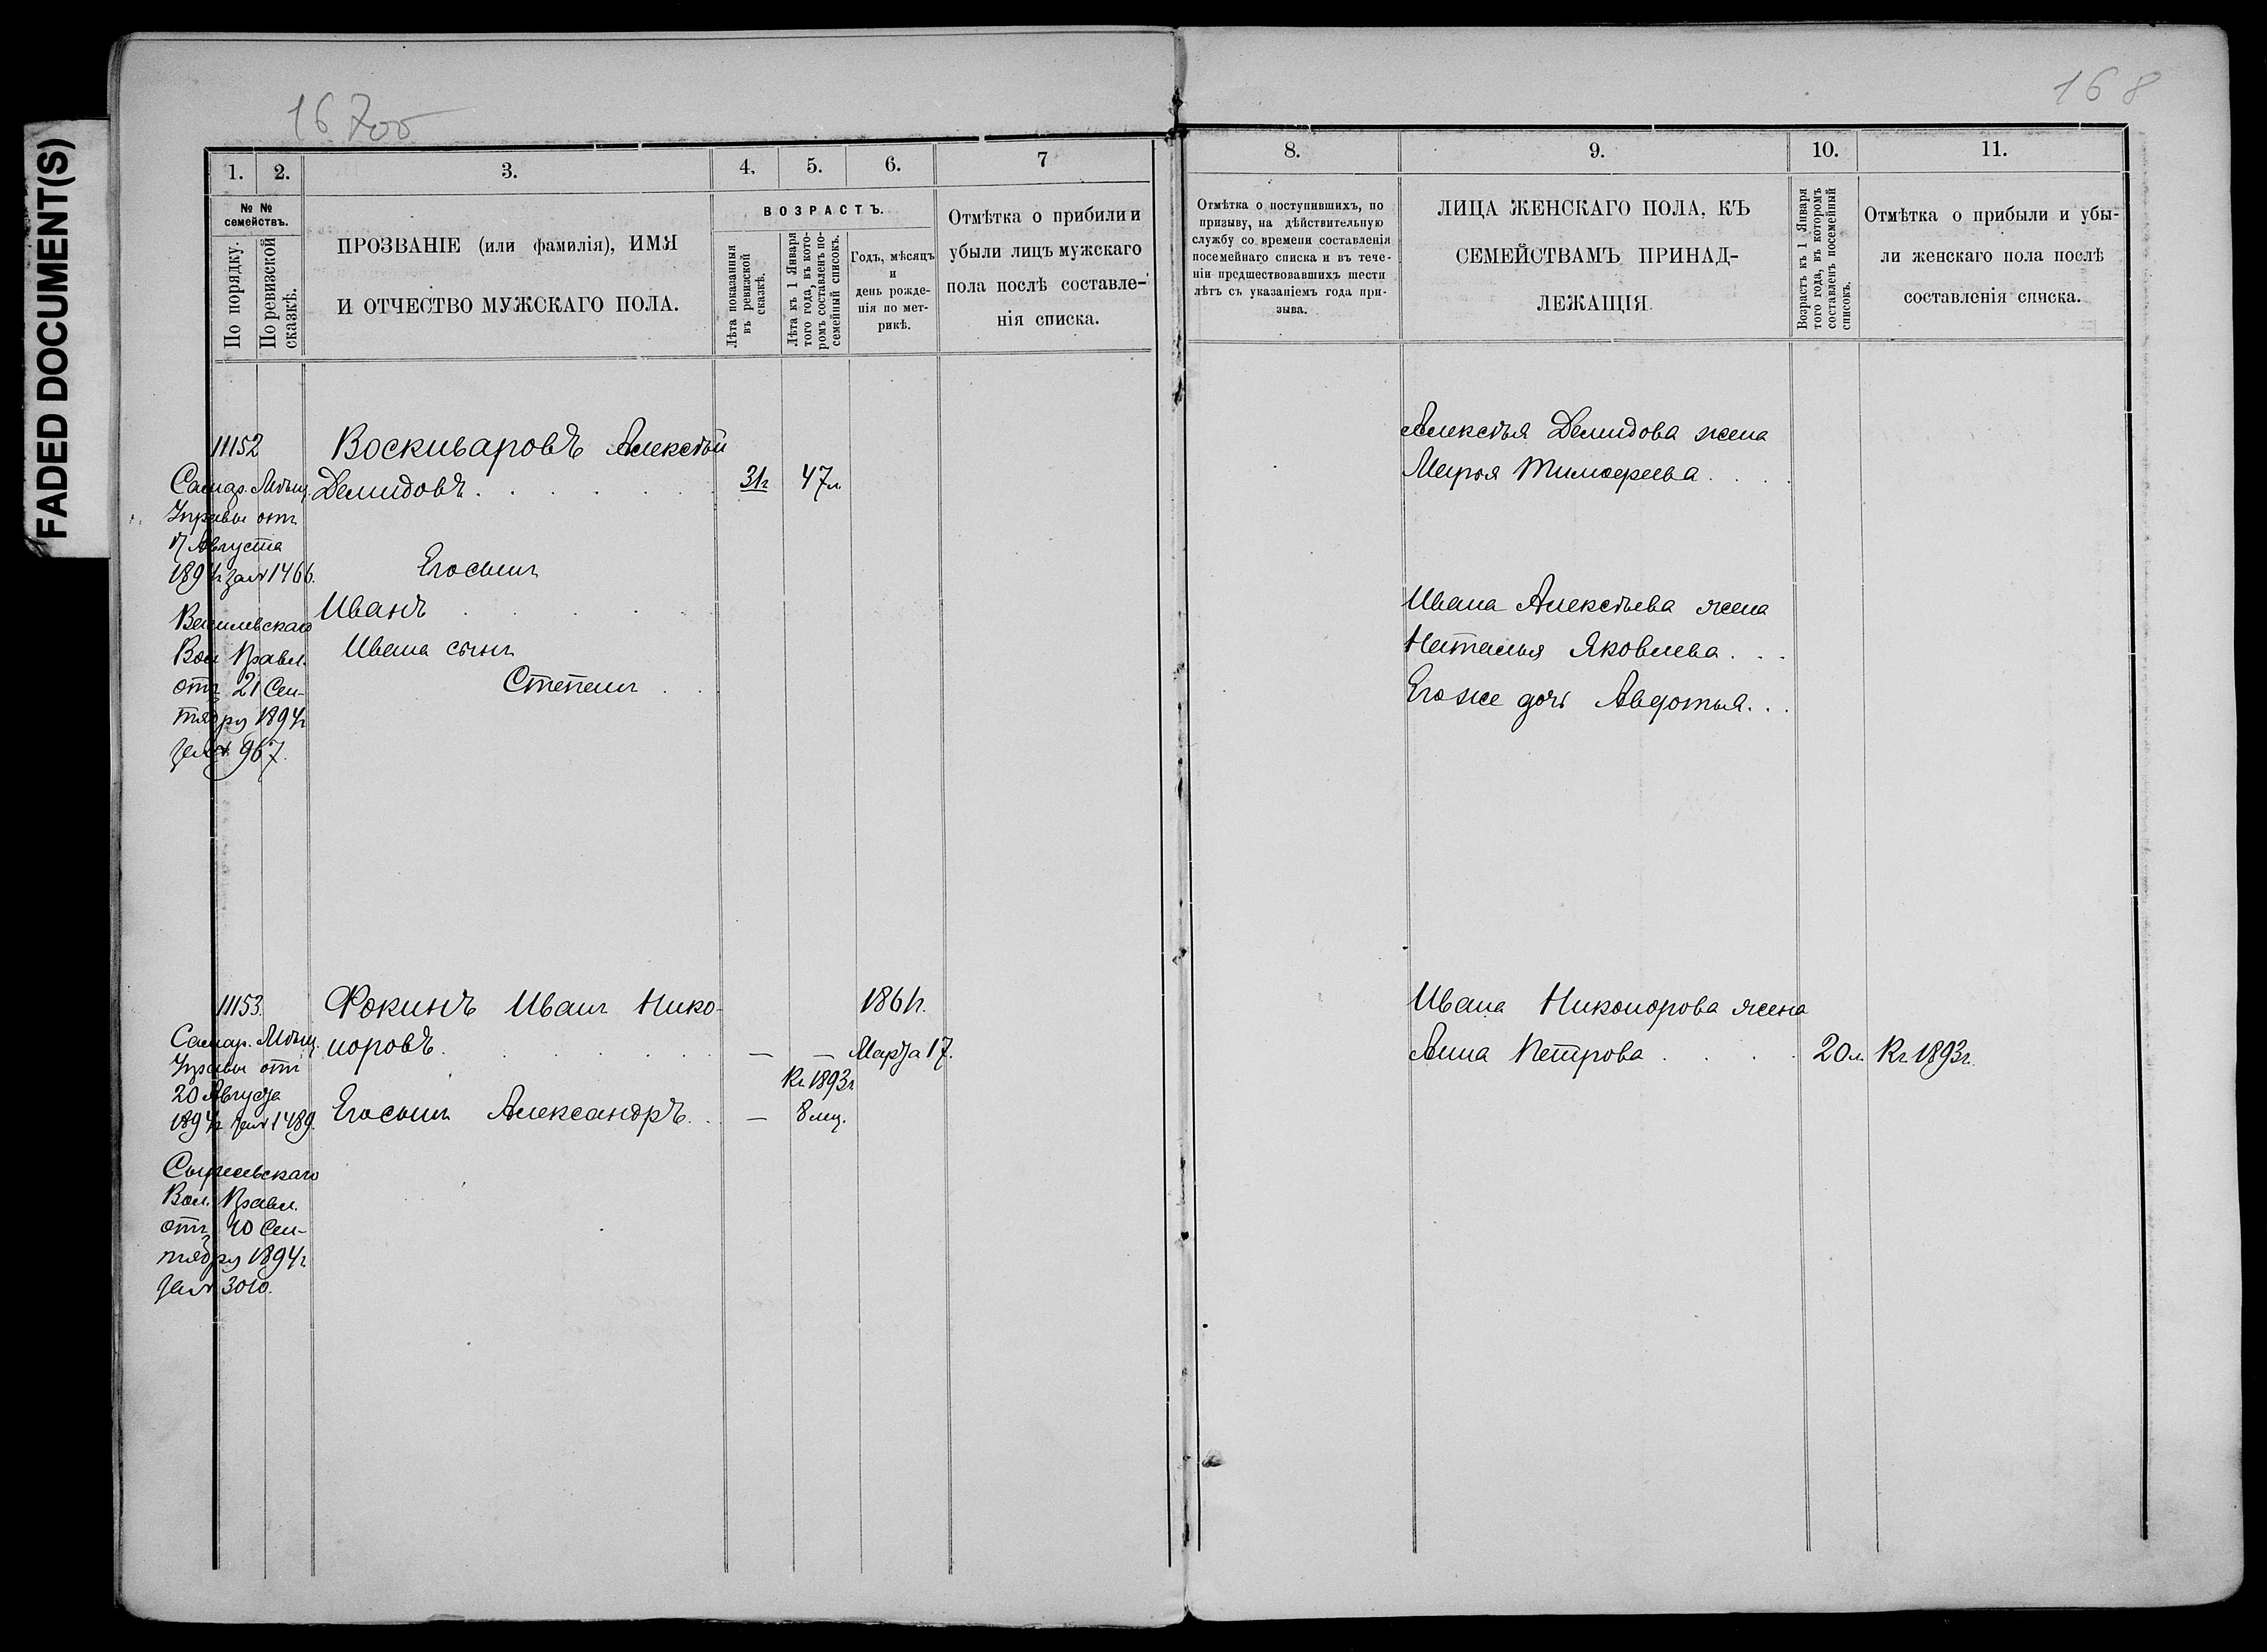 FADED DOCUMENT(S)
167об
168
1.
2.
3.
4.
5.
6.
7
8.
9.
10.
11.
№ №
семействъ.
По порядку.
По ревизской
сказкѣ.
ПРОЗВАНІЕ (или фамилія), ИМЯ
И ОТЧЕСТВО МУЖСКАГО ПОЛА.
ВОЗРАСТЪ.
Лѣта показанныя
въ ревизской
сказкѣ.
Лѣта къ 1 Января
того года, въ кото-
ромъ составленъ по-
семейный списокъ.
Годъ, мѣсяцъ
и
день рожде-
нія по мет-
рикѣ.
Отмѣтка о прибили и
убыли лицъ мужскаго
пола послѣ составле-
нія списка.
Отмѣтка о поступившихъ, по
призыву, на дѣйствительную
службу со времени составленія
посемейнаго списка и въ тече-
ніи предшествовавшихъ шести
лѣтъ съ указаніемъ года при-
зыва.
ЛИЦА ЖЕНСКАГО ПОЛА, КЪ
СЕМЕЙСТВАМЪ ПРИНАД-
ЛЕЖАЩІЯ
Возрастъ къ 1 Января
того года, въ которомъ
составленъ посемейный
списокъ.
Отмѣтка о прибыли и убы-
ли женскаго пола послѣ
составленія списка.
11152
Воскиваровъ Алексѣй
Демидовъ. 31г 47л
Самар. Мѣщ.
Управы отъ
17 Августа
1894г за № 1466.
Его сынъ
Иванъ
Ивана сынъ
Степанъ
Васильевскаго
Вол. Правл.
отъ 21 Сен-
тября 1894г
за № 967.
Алексѣя Демидова жена
Марья Тимофеева
Ивана Алексѣева жена
Наталья Яковлева
Его же дочь Авдотья
11153.
Фокинъ Иванъ Нико-
норовъ. — — 1861г.
Марта 17.
Самар. Мѣщ.
Управы отъ
20 Августа
1894г за № 1489.
Къ 1893г
Его сынъ Александръ. — 8 мц.
Вол. Правл.
отъ 10 Сен-
тября 1894г
за № 3010.
Ивана Никонорова жена
Анна Петрова 20л. Къ 1893г.